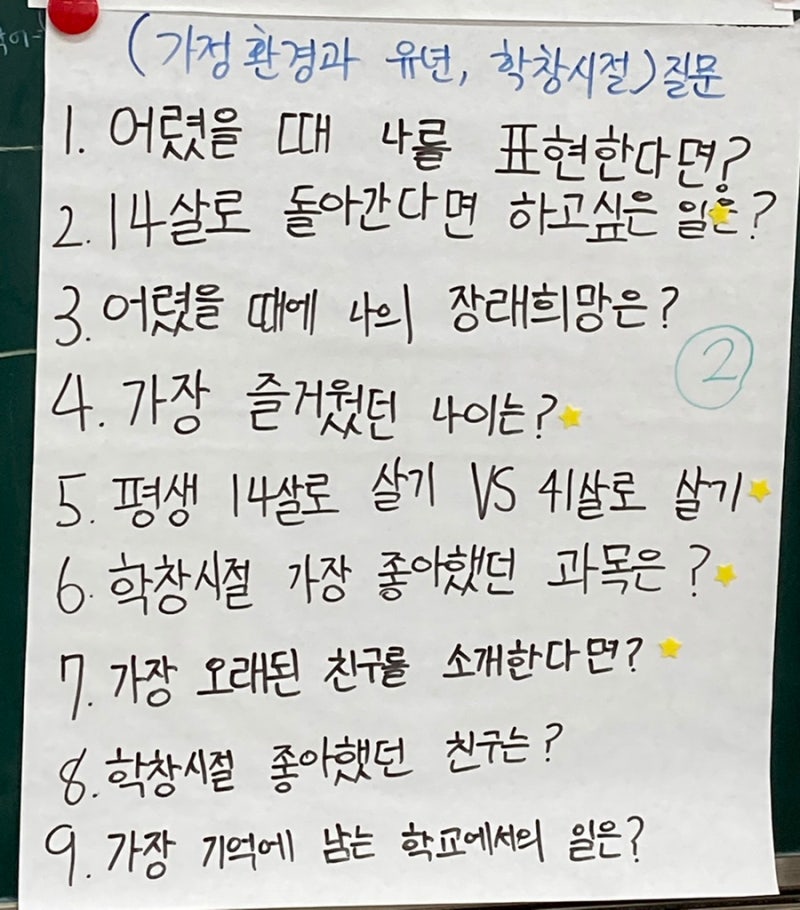 (가정환경과 유년, 학창시절) 질문
1. 어렸을 때 나를 표현한다면?
2. 14살로 돌아간다면 하고싶은 일은?
3. 어렸을 때에 나의 장래희망은?
②
4. 가장 즐거웠던 나이는?
5. 평생 14살로 살기 VS 41살로 살기
6. 학창시절 가장 좋아했던 과목은?
7. 가장 오래된 친구를 소개한다면?
8. 학창시절 좋아했던 친구는?
9. 가장 기억에 남는 학교에서의 일은?